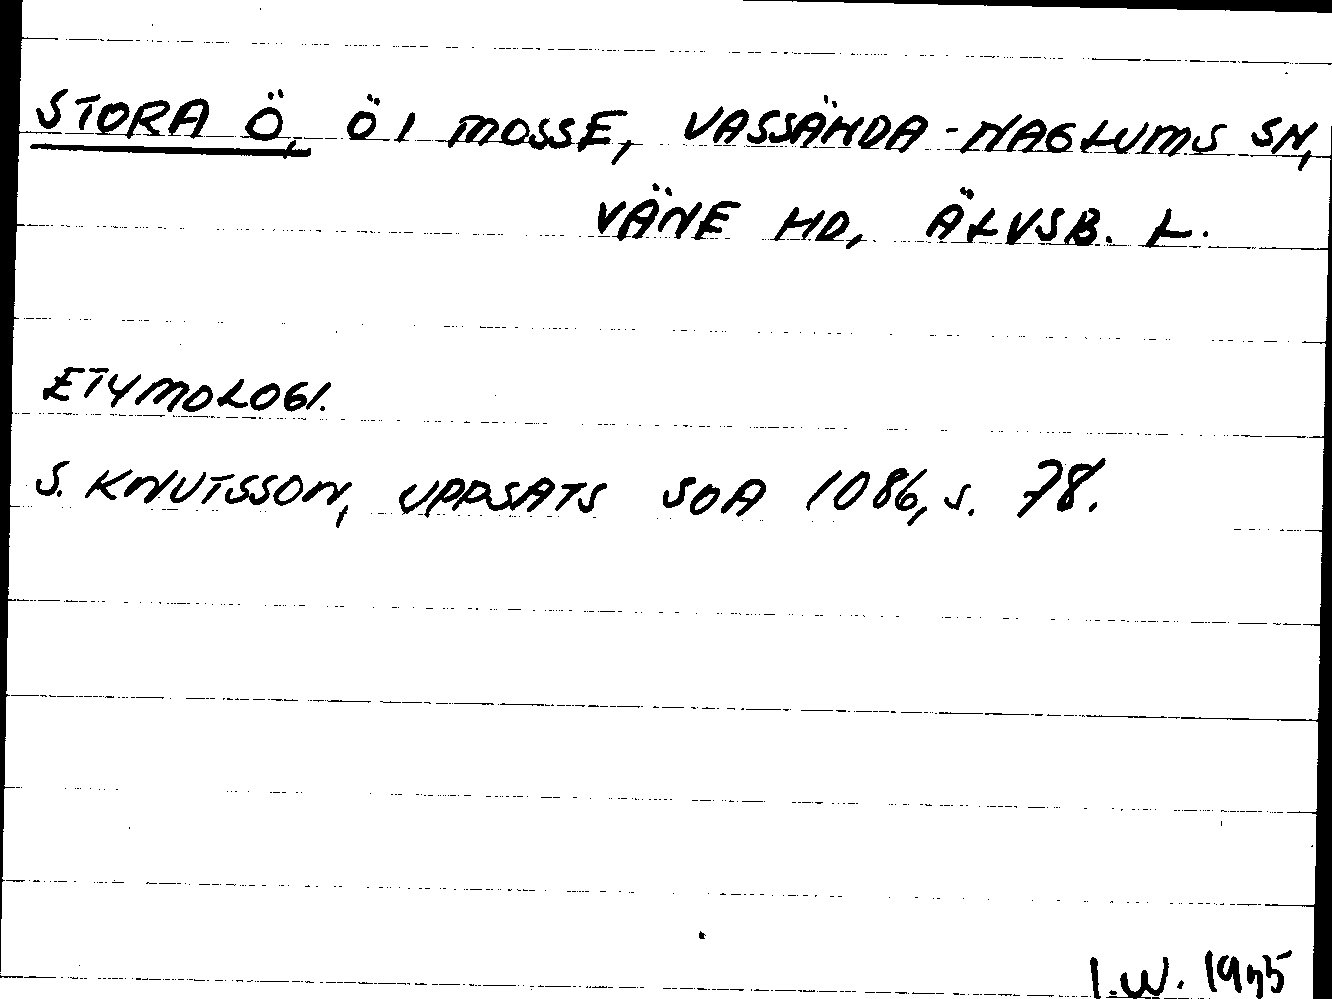 STORA Ö, Ö I MOSSE, VASSÄNDA-NAGLUMS SN,
VÄNE HD, ÄLVSB. L.
ETYMOLOGI.
S. KNUTSSON, UPPSATS SOA 1086, S. 78.
I.W. 1975